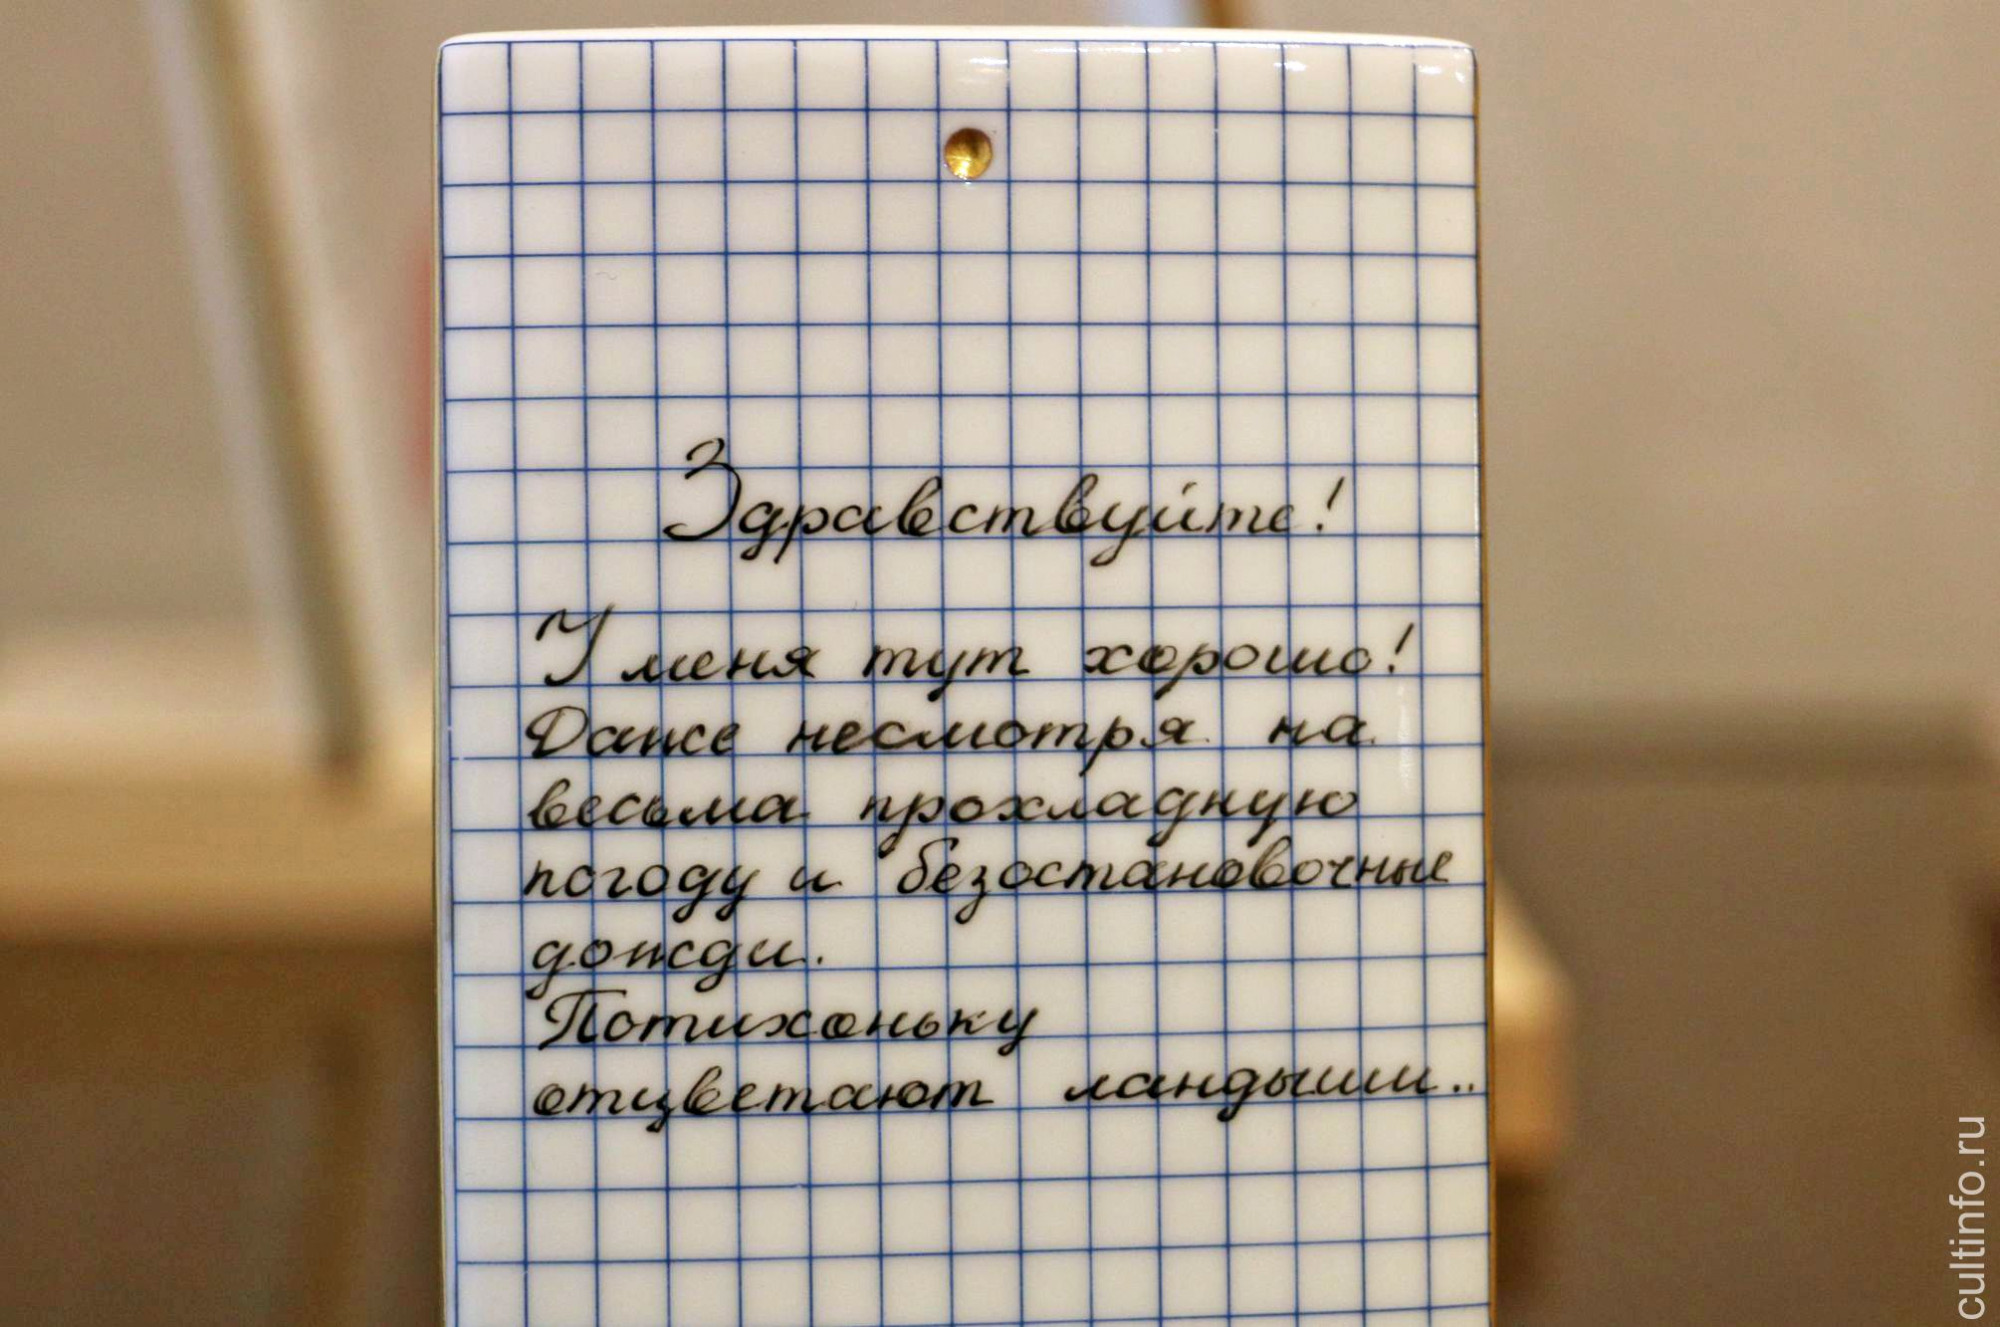 Здравствуйте!
У меня тут хорошо!
Даже несмотря на
весьма прохладную
погоду и безостановочные
дожди.
Потихоньку
отцветают ландыши..
cultinfo.ru